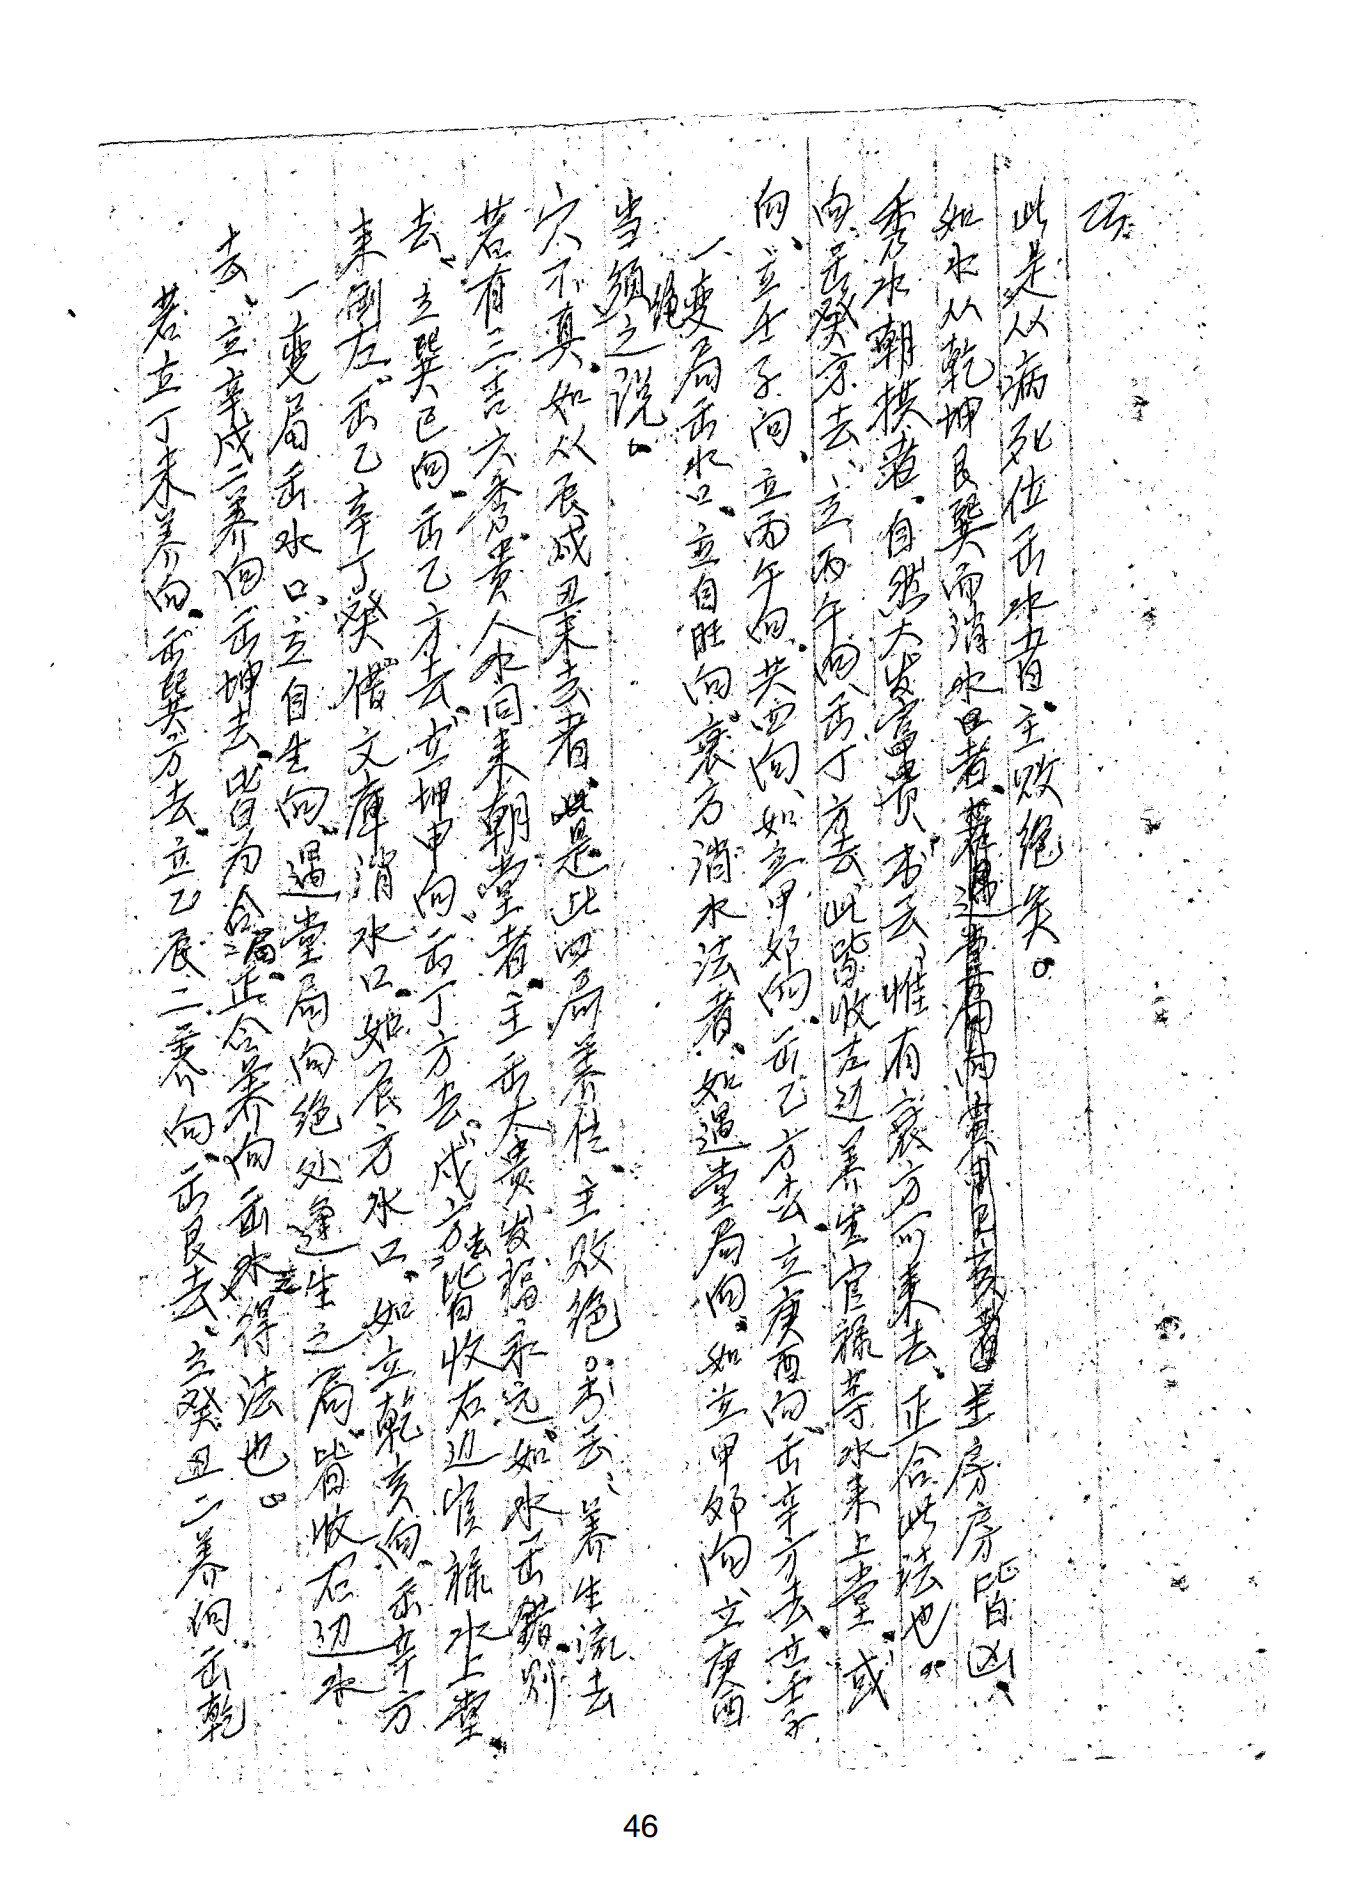 巧
此是从病死位出水者、主败绝矣。
如水从乾坤艮巽而消水口者、主房房皆凶、
秀水朝拱者、自然大发富贵、书云、惟有衰方可来去、正合此法也。
向、出癸方去、立丙午向、出丁方去、此皆收左边养生官禄等水来上堂、或
向、立壬子向、立丙午向、共四向、如立甲卯向、出乙方去、立庚酉向、出辛方去、立壬子
一变局出水口、立自旺向、衰方消水法者、如遇堂局向、如立甲卯向、立庚酉
当须绝之说。
穴不真、如从辰戌丑未去者、此是此四局养位、主败绝。书云、养生流去
若有三吉六秀贵人水同来朝堂者、主出大贵发福永远、如水出错、别
去、立巽巳向、出乙方去、立坤申向、出丁方去、戌方去、皆收右边官禄水上堂、
来倒左、出乙辛丁癸借文库消水口、如辰方水口、如立乾亥向、出辛方
一变局出水口、立自生向、遇堂局向绝处逢生之局、皆收右边水
去、立辛戌二养向、出坤去、皆为合局、正合养向出水之得法也。
若立丁未养向、出巽方去、立乙辰二养向、出艮去、立癸丑二养向出乾
46